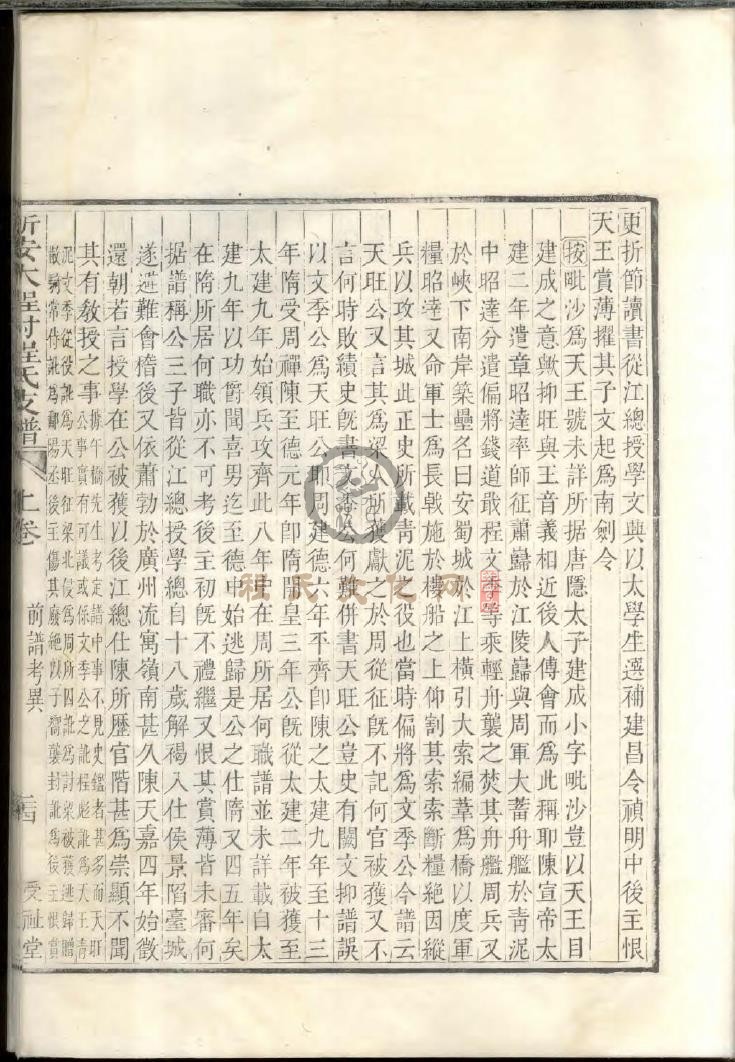 更折節讀書從江總授學文與以太學生選補建昌令禎明中後主恨
天王賞薄擢其子文起為南劍令
按毗沙為天王號未詳所据唐隱太子建成小字毗沙豈以天王目
建成之意歟抑旺與王音義相近後人傅會而為此稱耶陳宣帝太
建二年遣章昭達率師征蕭巋於江陵巋與周軍大蓄舟艦於青泥
中昭達分遣偏將錢道戢程文季等乘輕舟襲之焚其舟艦周兵又
於峽下南岸築壘名曰安蜀城於江上橫引大索編葦為橋以度軍
糧昭達又命軍士為長戟施於樓船之上仰割其索索斷糧絕因縱
兵以攻其城此正史所載青泥之役也當時偏將為文季公今譜云
天旺公又言其為梁人所獲獻之於周從征既不記何官被獲又不
言何時敗績史既書文季公何難併書天旺公豈史有闕文抑譜誤
以文季公為天旺公耶周建德六年平齊卽陳之太建九年至十三
年隋受周禪陳至德元年卽隋開皇三年公既從太建二年被獲至
太建九年始領兵攻齊此八年中在周所居何職譜並未詳載自太
建九年以功爵聞喜男迄至德中始逃歸是公之仕隋又四五年矣
在隋所居何職亦不可考後主初既不禮繼又恨其賞薄皆未審何
据譜稱公三子皆從江總授學總自十八歲解褐入仕侯景陷臺城
遂避難會稽後又依蕭勃於廣州流寓嶺南甚久陳天嘉四年始徵
還朝若言授學在公被獲以後江總仕陳所歴官階甚為崇顯不聞
其有教授之事據午橋先生考定譜中事不見史鑑者甚多而天旺
公事實有可議或係文季公之訛程彪訛為天王青
泥文季從役訛為天旺征梁北侵為周所囚訛為討梁被獲逃歸贈
散騎常侍訛為鄱陽丞後主傷其廢絕以子嚮襲封訛為後主恨賞
新安大程村程氏支譜
上卷
前譜考異
二四
受祉堂
程氏文化网